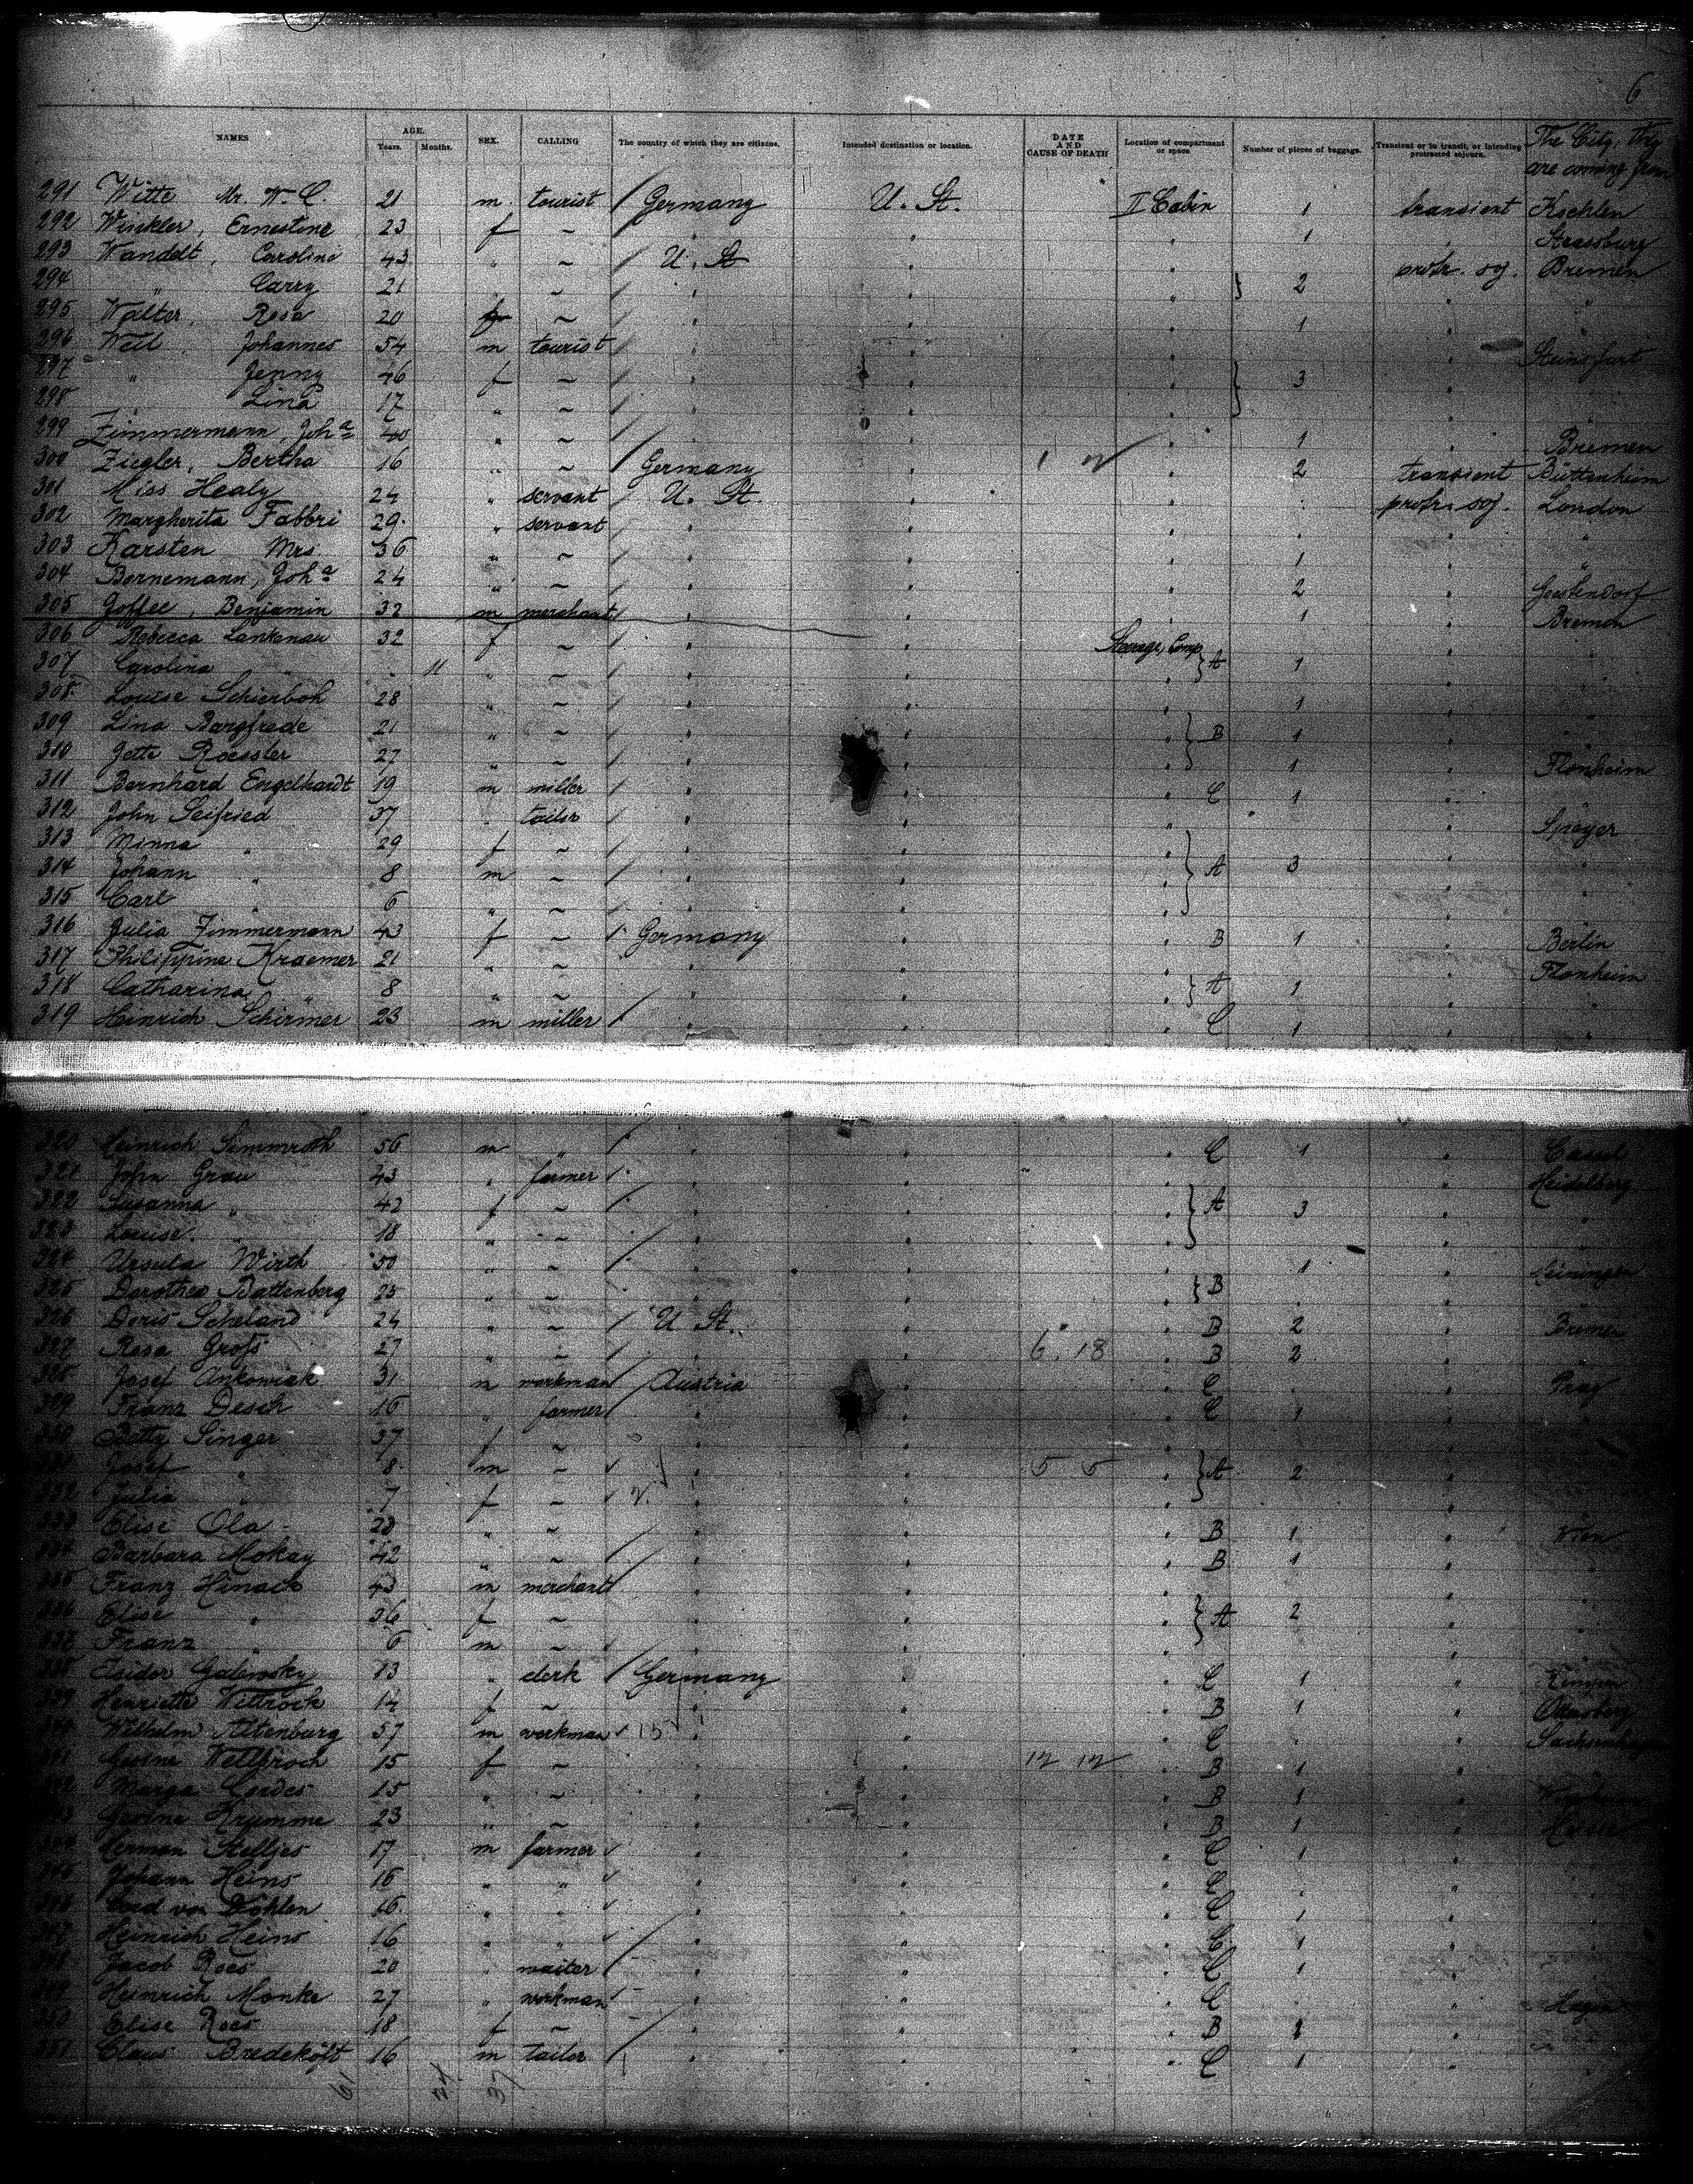 6
NAMES AGE. Years. Months. SEX. CALLING The country of which they are citizens. Intended destination or location. DATE AND CAUSE OF DEATH Location of compartment or space Number of pieces of baggage. Transient or in transit, or intending protracted sojourn. The City, they are coming from
291 Witte Mr. W. C. 21 m. tourist Germany U. St. II Cabin 1 transient
292 Winkler, Ernestine 23 f ~ " " " 1 " Strassburg
293 Wandelt, Caroline 43 " ~ U. St " " protr. soj. Bremen
294 " Carry 21 " ~ " " " } 2 " "
295 Walter, Rosa 20 f ~ " " " 1 " "
296 Weil, Johannes 54 m tourist " " " " Steinsfurt
297 " Jenny 46 f ~ " " " } 3 "
298 " Lina 17 " ~ " " " "
299 Zimmermann, Joh^a 40 " ~ " " " 1 " Bremen
300 Ziegler, Bertha 16 " ~ Germany " " 2 transient Büttenheim
301 Miss Healy 24 " servant U. St. " " " protr. soj. London
302 Margherita Fabbri 29 " servant " " " " " "
303 Karsten Mrs. 36 " ~ " " " 1 " "
304 Bornemann, Joh^a 24 " ~ " " " 2 " Geestendorf
305 Joffee, Benjamin 32 m merchant " " " 1 " Bremen
306 Rebecca Lankenau 32 f ~ " " Steerage, Comp
307 Carolina " 11 " ~ " " " } A 1 " "
308 Louise Schierboh 28 " ~ " " " 1 " "
309 Lina Bargfrede 21 " ~ " " " } B 1 " "
310 Jette Roessler 27 " ~ " " " 1 " Flonheim
311 Bernhard Engelhardt 19 m miller " " " C 1 " "
312 John Seifried 37 " tailor " " " " Speyer
313 Minna " 29 f ~ " " " " "
314 Johann " 8 m ~ " " " } A 3 " "
315 Carl " 6 " ~ " " " " "
316 Julia Zimmermann 43 f ~ Germany " " B 1 " Berlin
317 Philippine Kraemer 21 " ~ " " " " Flonheim
318 Catharina " 8 " ~ " " " } A 1 " "
319 Heinrich Schirmer 23 m miller " " " C 1 " "
320 Heinrich Simmroth 56 m " " " " C 1 " Cassel
321 John Grau 43 " farmer " " " " Heidelberg
322 Susanna " 42 f ~ " " " } A 3 " "
323 Louise " 18 " ~ " " " " "
324 Ursula Wirth 50 " ~ " " " 1 " Meiningen
325 Dorothea Battenberg 23 " ~ " " " } B " "
326 Doris Scheland 24 " ~ U St. " " B 2 " Bremen
327 Rosa Grofs 27 " ~ " " 6. 18 " B 2 "
328 Josef Ankowiak 31 m workman Austria " " C " " Prag
329 Franz Desch 16 " farmer " " " C 1 " "
330 Betty Singer 37 f ~ " " " "
331 Josef " 8 m ~ " " 5 5 " } A 2 "
332 Julia " 7 f ~ " " " "
333 Elise Ola 23 " ~ " " " B 1 " Wien
334 Barbara Mokay 42 " ~ " " " B 1 " "
335 Franz Hinack 43 m merchant " " " " "
336 Elise " 36 f ~ " " " } A 2 " "
337 Franz " 6 m ~ " " " " "
338 Isidor Galewsky 13 " clerk Germany " " C 1 " Kempen
339 Henriette Wittrock 14 f ~ " " " B 1 " Ottersberg
340 Wilhelm Altenburg 57 m workman 13 " " " C " " Sachsenhagen
341 Gesine Wellbrock 15 f ~ " " 12 12 " B 1 "
342 Marga Cordes 15 " ~ " " " B 1 "
343 Gesine Krumme 23 " ~ " " " B 1 "
344 Herman Stelljes 17 m farmer " " " C 1 "
345 Johann Heins 16 " " " " " C " "
346 Cord von Döhlen 16 " " " " " C 1 "
347 Heinrich Heins 16 " " " " " C 1 "
348 Jacob Roes 20 " waiter " " " C 1 "
349 Heinrich Monke 27 " workman " " " C " " Hagen
350 Elise Roes 18 f ~ " " " B 1 "
351 Claus Bredehöft 16 m tailor " " " C 1 "
61 24 37